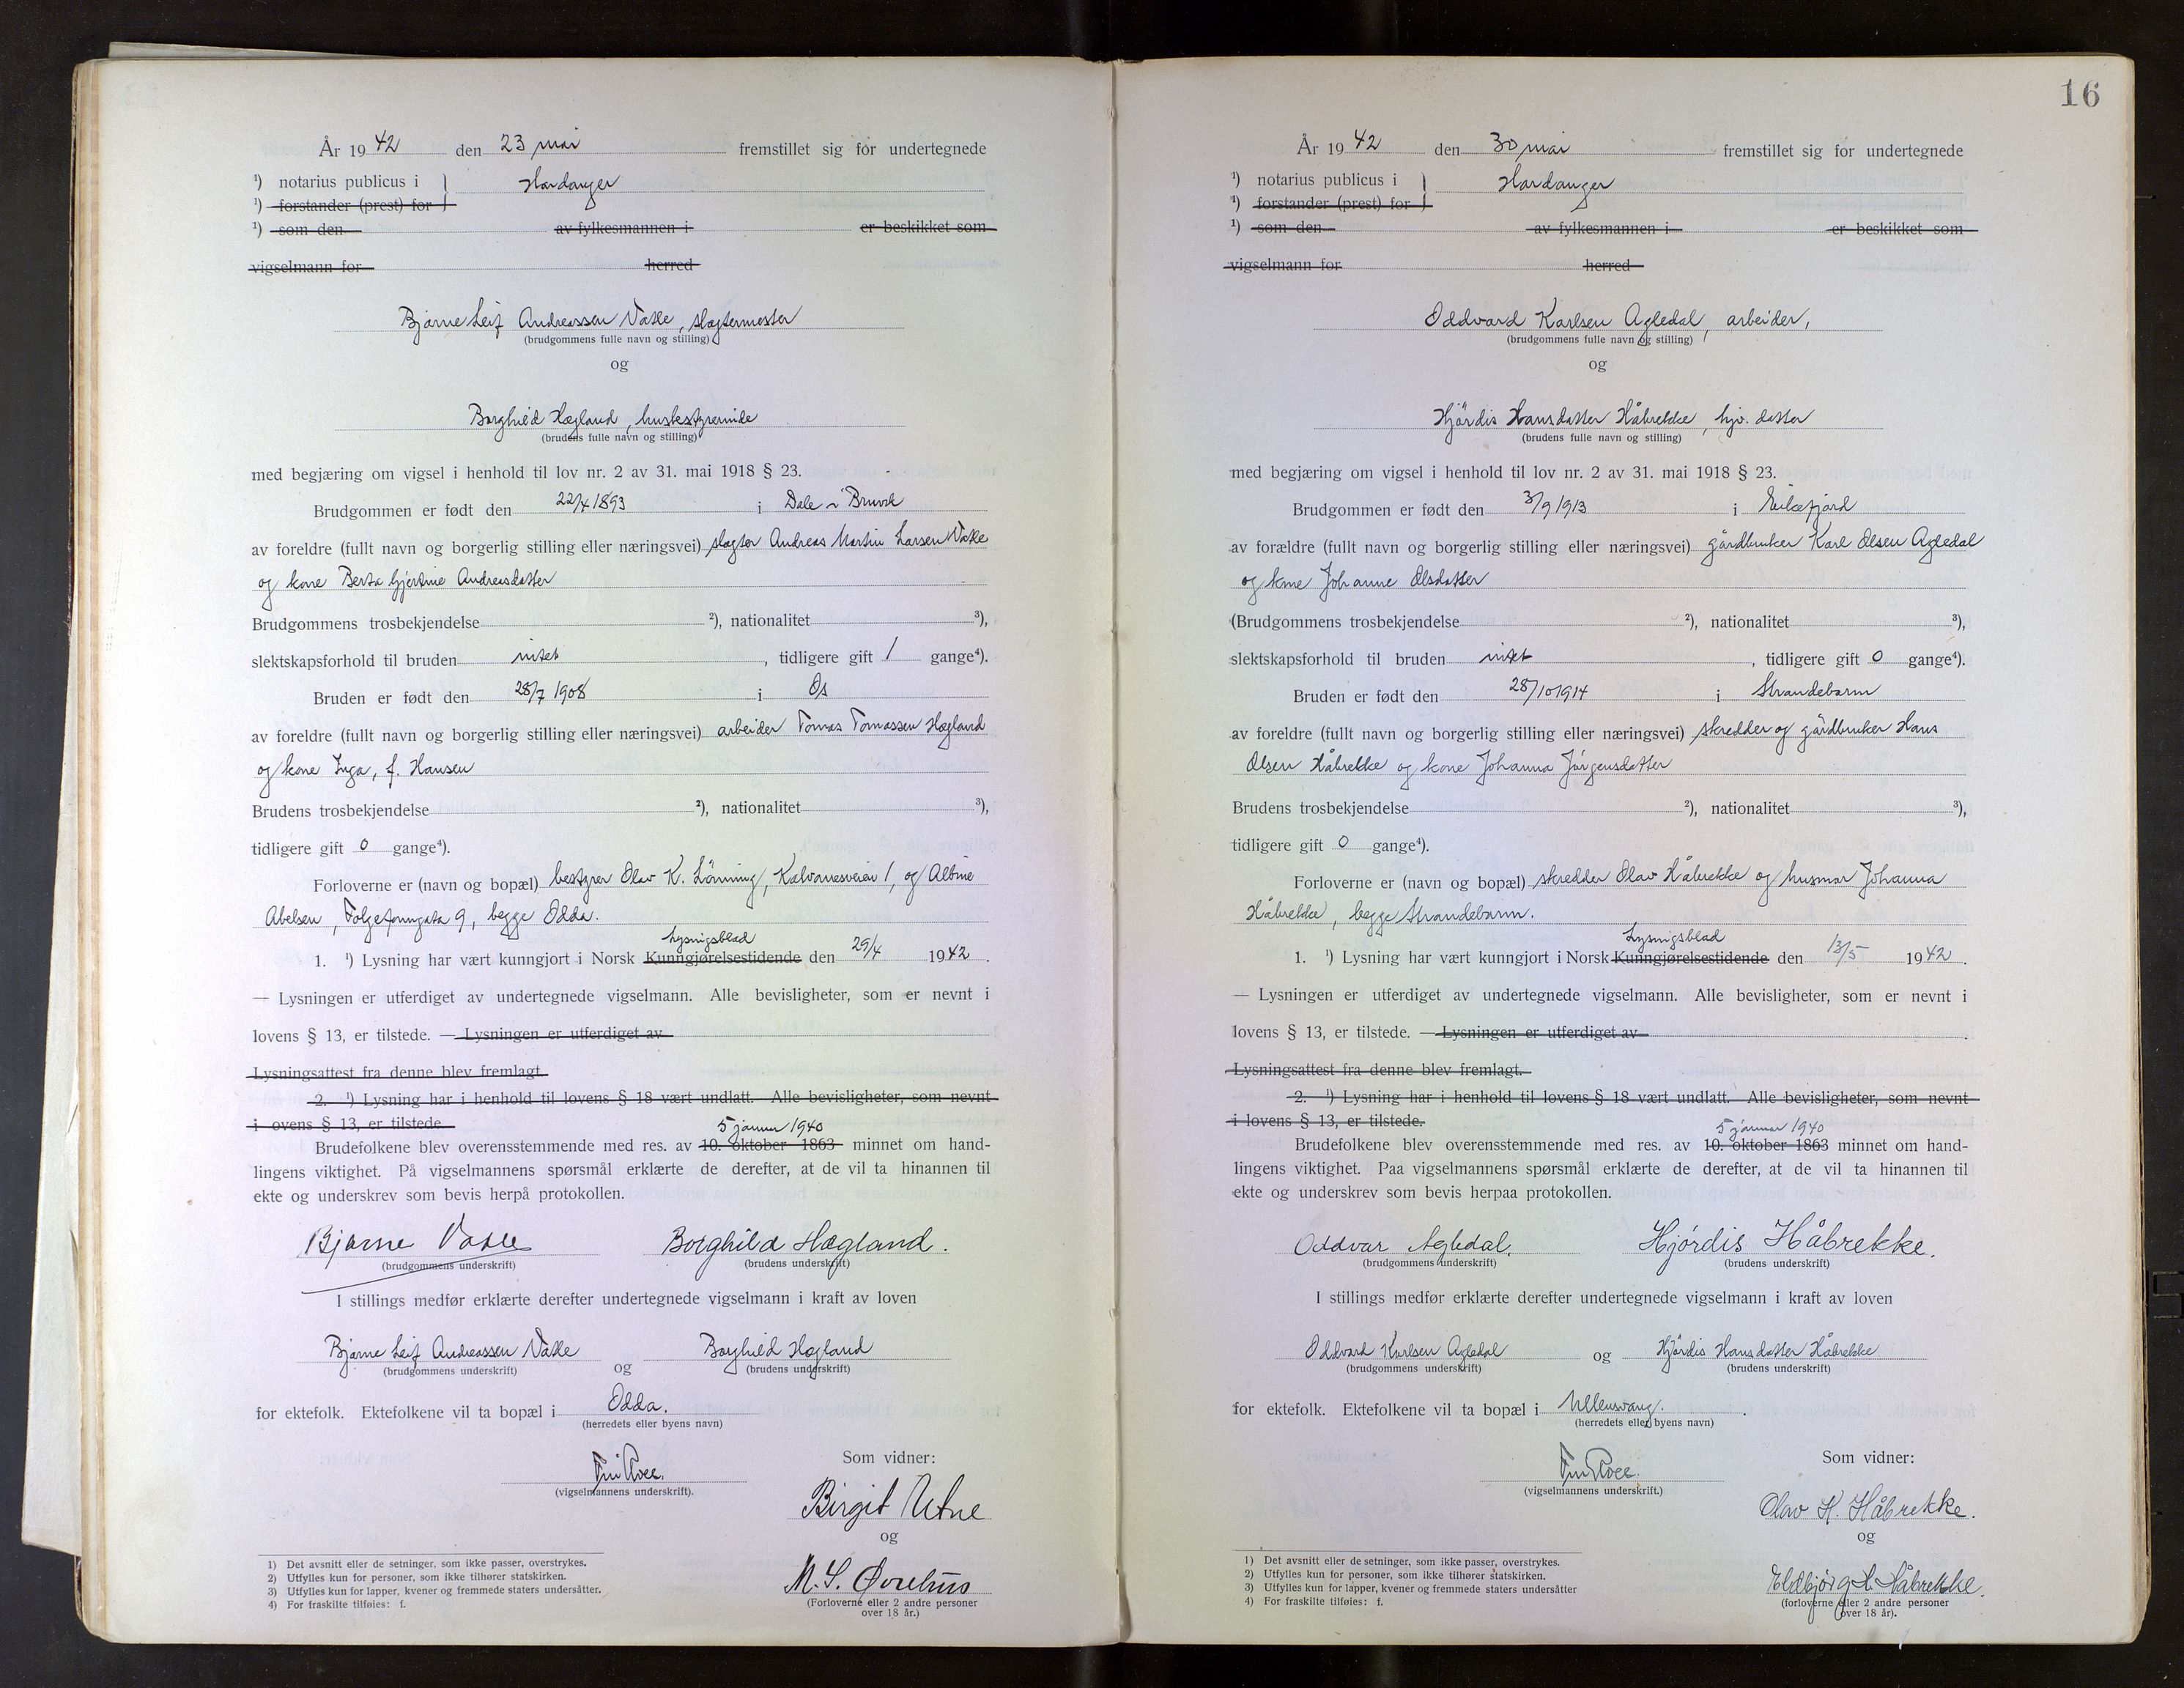 År 1942 den 23 mai fremstillet sig for undertegnede
¹) notarius publicus i } Hardanger
¹) forstander (prest) for
¹) som den av fylkesmannen i er beskikket som
vigselmann for herred
Bjarne Leif Andreassen Vasle, slagtermester
(brudgommens fulle navn og stilling)
og
Borghild Hægland, husbestyrerinde
(brudens fulle navn og stilling)
med begjæring om vigsel i henhold til lov nr. 2 av 31. mai 1918 § 23.
Brudgommen er født den 22/4 1893 i Dale i Bruvik
av foreldre (fullt navn og borgerlig stilling eller næringsvei) slagter Andreas Martin Larsen
og kone Berta Gjertine Andreasdatter
Brudgommens trosbekjendelse ²), nationalitet ³),
slektskapsforhold til bruden intet, tidligere gift 1 gange⁴).
Bruden er født den 28/7 1908 i Os
av foreldre (fullt navn og borgerlig stilling eller næringsvei) arbeider Tomas Tomassen Hægland
og kone Inga, f. Hansen
Brudens trosbekjendelse ²), nationalitet ³),
tidligere gift 0 gange⁴).
Forloverne er (navn og bopæl) bestyrer Olav K. Lönning, Kalvanesveien 1, og Albine
Abelsen, Folgefonngata 9, begge Odda.
Lysingsblad
1. ¹) Lysning har vært kunngjort i Norsk Kunngjørelsestidende den 29/4 1942.
— Lysningen er utferdiget av undertegnede vigselmann. Alle bevisligheter, som er nevnt i
lovens § 13, er tilstede. — Lysningen er utferdiget av
Lysningsattest fra denne blev fremlagt.
2. ¹) Lysning har i henhold til lovens § 18 vært undlatt. Alle bevisligheter, som nevnt
i ovens § 13, er tilstede.
5 januar 1940
Brudefolkene blev overensstemmende med res. av 10. oktober 1863 minnet om hand-
lingens viktighet. På vigselmannens spørsmål erklærte de derefter, at de vil ta hinannen til
ekte og underskrev som bevis herpå protokollen.
Bjarne Borghild Hægland.
(brudgommens underskrift) (brudens underskrift)
I stillings medfør erklærte derefter undertegnede vigselmann i kraft av loven
Bjarne Leif Andreassen og Borghild Hægland
(brudgommens underskrift) (brudens underskrift)
for ektefolk. Ektefolkene vil ta bopæl i Odda.
(herredets eller byens navn)
Som vidner:
(vigselmannens underskrift).
Birgit Utne
og
M. S. Øvrehus
(Forloverne eller 2 andre personer
over 18 år.)
1) Det avsnitt eller de setninger, som ikke passer, overstrykes.
2) Utfylles kun for personer, som ikke tilhører statskirken.
3) Utfylles kun for lapper, kvener og fremmede staters undersåtter.
4) For fraskilte tilføies: f.
16
År 1942 den 30 mai fremstillet sig for undertegnede
¹) notarius publicus i } Hardanger
¹) forstander (prest) for
¹) som den av fylkesmannen i er beskikket som
vigselmann for herred
Oddvard Karlsen Agledal, arbeider,
(brudgommens fulle navn og stilling)
og
Hjördis Hansdatter Håbrekke, hjv. datter
(brudens fulle navn og stilling)
med begjæring om vigsel i henhold til lov nr. 2 av 31. mai 1918 § 23.
Brudgommen er født den 3/9 1913 i Eikefjord
av forældre (fullt navn og borgerlig stilling eller næringsvei) gårdbruker Karl Olsen Agledal
og kone Johanne Olsdatter
(Brudgommens trosbekjendelse ²), nationalitet ³),
slektskapsforhold til bruden intet, tidligere gift 0 gange⁴).
Bruden er født den 28/10 1914 i Strandebarm
av foreldre (fullt navn og borgerlig stilling eller næringsvei) skredder og gårdbruker Hans
Olsen Håbrekke og kone Johanna Jörgensdatter
Brudens trosbekjendelse ²), nationalitet ³),
tidligere gift 0 gange⁴).
Forloverne er (navn og bopæl) skredder Olav Håbrekke og husmor Johanna
Håbrekke, begge Strandebarm.
Lysingsblad
1. ¹) Lysning har vært kunngjort i Norsk Kunngjørelsestidende den 13/5 1942.
— Lysningen er utferdiget av undertegnede vigselmann. Alle bevisligheter, som er nevnt i
lovens § 13, er tilstede. — Lysningen er utferdiget av
Lysningsattest fra denne blev fremlagt.
2. ¹) Lysning har i henhold til lovens § 18 vært undlatt. Alle bevisligheter, som nevnt
i lovens § 13, er tilstede.
5 januar 1940
Brudefolkene blev overensstemmende med res. av 10. oktober 1863 minnet om hand-
lingens viktighet. Paa vigselmannens spørsmål erklærte de derefter, at de vil ta hinannen til
ekte og underskrev som bevis herpaa protokollen.
Oddvar Agledal. Hjórdis Håbrekke.
(brudgommens underskrift) (brudens underskrift)
I stillings medfør erklærte derefter undertegnede vigselmann i kraft av loven
Oddvard Karlsen Agledal og Hjördis Hansdatter Håbrekke
(brudgommens underskrift) (brudens underskrift)
for ektefolk. Ektefolkene vil ta bopæl i Ullensvang.
(herredets eller byens navn)
Som vidner:
(vigselmannens underskrift.)
Olav H. Håbrekke.
og
Eldbjørg H. Håbrekke.
(forloverne eller 2 andre personer
over 18 år).
1) Det avsnitt eller de setninger, som ikke passer, overstrykes.
2) Utfylles kun for personer, som ikke tilhører statskirken.
3) Utfylles kun for lapper, kvener og fremmede staters undersåtter
4) For fraskilte tilføies: f.